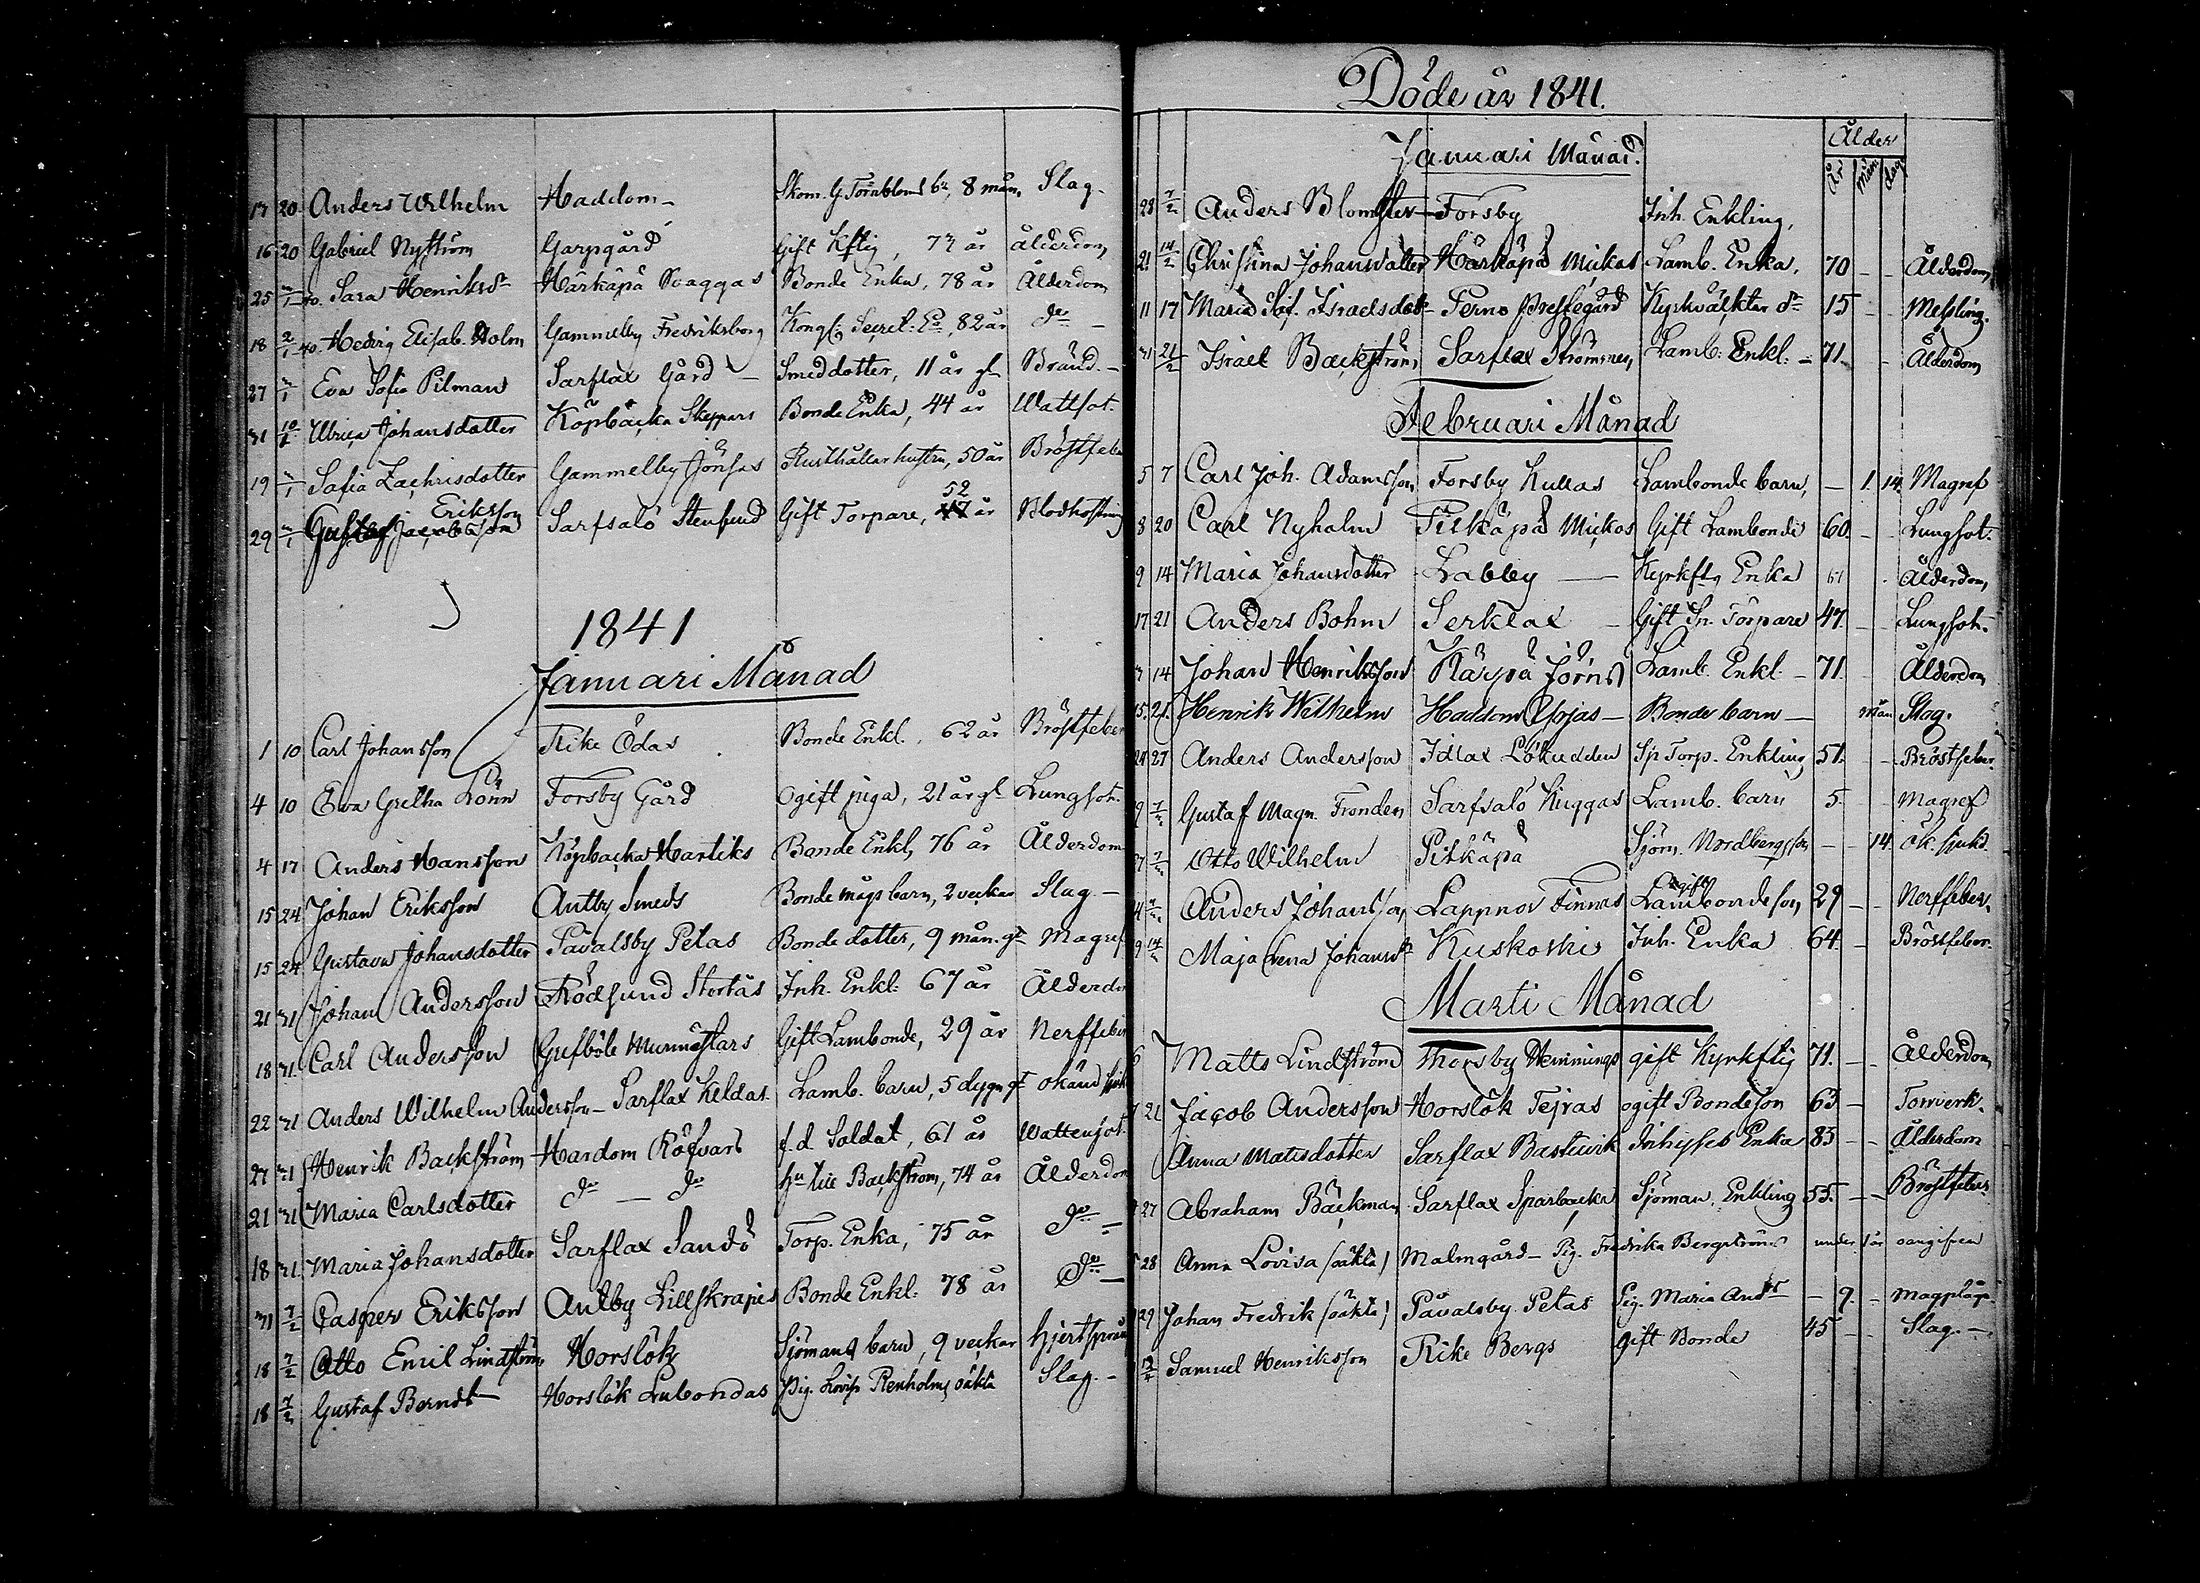 17 20 Anders Wilhelm Haddom Skom. G. Törnbloms bn, 8 mån. Slag.
16 20 Gabriel Nyström Garpgård Gift Kftig, 77 år Ålderdom
25 Sara Henriksdr Härkäpä Skaggas Bonde Enka, 78 år Ålderdom
18 Hedvig Elisab. Holm Gammelby Fredriksborg Kongl. Secret. Ea, 82 år do
27 Eva Sofia Pilman Sarflax Gård Smed dotter, 11 år gl. Bränd.
31 Ulrica Johansdotter Köpbacka Skeppars Bonde Enka, 44 år Wattsot.
19 Safia Zachrisdotter Gammelby Jönsas Rusthållar hustru, 50 år Bröstfeb
Eriksson 52
29 Gustaf Jacobsson Sarfsalö Stensund Gift Torpare, 47 år Blodhostning
1841
Januari Månad
1 10 Carl Johansson Rike Ödas Bonde Enkl., 62 år Bröstfeber
4 10 Ewa Gretha Lönn Forsby Gård Ogift piga, 21 år gl. Lungsot.
4 17 Anders Hansson Köpbacka Hartiks Bonde Enkl, 76 år Ålderdom
15 24 Johan Eriksson Antby Smeds Bonde mågs barn, 2 veckor Slag.
15 24 Gustava Johansdotter Påvalsby Petas Bonde dotter, 9 mån. gl Magref
21 31 Johan Andersson Rödsund Stortäs Inh. Enkl: 67 år Ålderdo
18 31 Carl Andersson Gefböle Murmästars Gift Lambonde, 29 år Nerffeber
22 31 Anders Wilhelm Andersson Sarflax Keldas. Lamb. barn, 5 dygn gl okänd sjuk
27 31 Henrik Backström Hardom Röfvars f.d. Soldat, 61 år Wattensot.
21 31 Maria Carlsdotter do do hu till Backström, 74 år Ålderdom
18 31 Maria Johansdotter Sarflax Sandö Torp. Enka, 75 år do
31 7/2 Casper Eriksson Antby Lillskrapis Bonde Enkl: 78 år do
18 7/2 Otto Emil Lindström Horslök Sjömans barn, 9 veckor Hjertsprån
18 7/2 Gustaf Berndt Horslök Labondas Pig. Lovis Renholms oäkta Slag.
Döde år 1841.
Januari Månad.
Ålder
År Mån dag
28 7/2 Anders Blomster Forsby Inh. Enkling,
21 14/2 Christina Johanwalter Härkäpä Mickas Lamb. Enka, 70 Ålderdom
11 17 Maria Sof. Israelsdotr Perno Prestegård Kyrkväktar dr 15 Messling.
31 21/2 Israel Backström Sarflax Strömsnes Lamb: Enkl. 71 Ålderdom
Februari Månad
5 7 Carl Joh. Adamsson Forsby Kullas Lambonde barn, 1. 14 Magref
8 20 Carl Nyholm Pitkäpä Mickos Gift Lambonde 60 Lungsot.
9 14 Maria Johansdotter Labby Kyrkftg Enka 61 Ålderdom
17 21 Anders Bohm Serklax Gift Sp. Torpare 47 Lungsot.
3 14 Johan Henriksson Kärpä Jörns Lamb. Enkl. 71 Ålderdom
15 21 Henrik Wilhelm Haddom Yrjas Bonde barn mån Slag.
24 27 Anders Andersson Idlax Lökudden Sp Torp. Enkling 51. Bröstfeber.
9 Gustaf Magn. Fronden Sarfsalö Kuggas Lamb. barn 5 Magref
7 Otto Wilhelm Pitkäpä Sjöm. Nordbergs son 14. Ok. sjukd.
4 Anders Johansson Lappnor Finnas ogift Lambondeson 29 Nerffeber.
9 14/2 Maja Lena Johansdr Kuskoski Inh. Enka 64. Bröstfeber.
Marti Månad
6 Matts Lindström Thorsby Hemmings gift Kyrkftig 71. Ålderdom
21 Jacob Andersson Horslök Tejras ogift Bondeson 63 Torrverk.
Anna Matsdotter Sarflax Bastuvik Inhyses Enka 83 Ålderdom
27 Abraham Bäckman Sarflax Sparbacka Sjöman, Enkling 55. Bröstfeber.
28 Anna Lovisa (oäkta) Malmgård Pig. Fredrika Bergström under 1 år oangifven
29 Johan Fredrik (oäkta) Påvalsby Petas Pig. Maria Andsdr 9. magplåga.
Samuel Henriksson Rike Bergs gift Bonde 45 Slag.